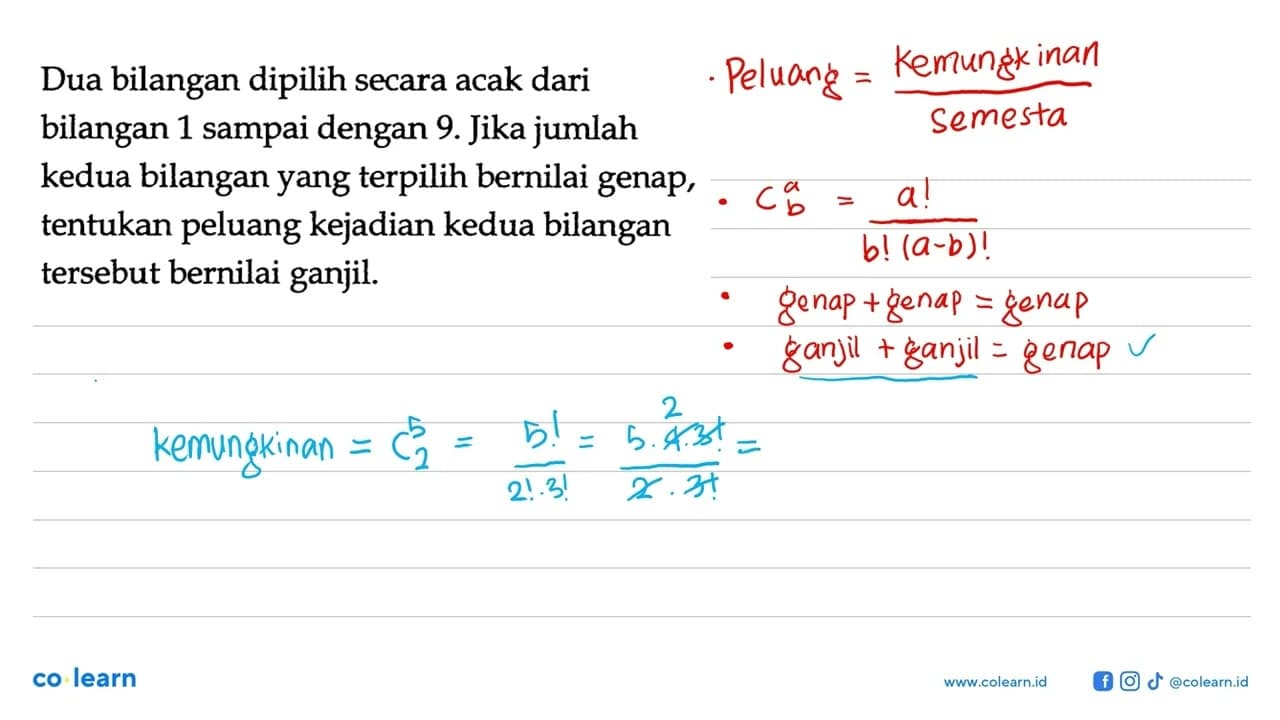 Dua bilangan dipilih secara acak dari
bilangan 1 sampai dengan 9. Jika jumlah
kedua bilangan yang terpilih bernilai genap,
tentukan peluang kejadian kedua bilangan
tersebut bernilai ganjil.
• Peluang = kemungkinan / semesta
• C^a_b = a! / b! (a-b)!
• genap + genap = genap
• ganjil + ganjil = genap ✓
kemungkinan = C^5_2 = 5! / 2!.3! = 5.4.3! / 2.3! =
2
co learn
www.colearn.id
@colearn.id